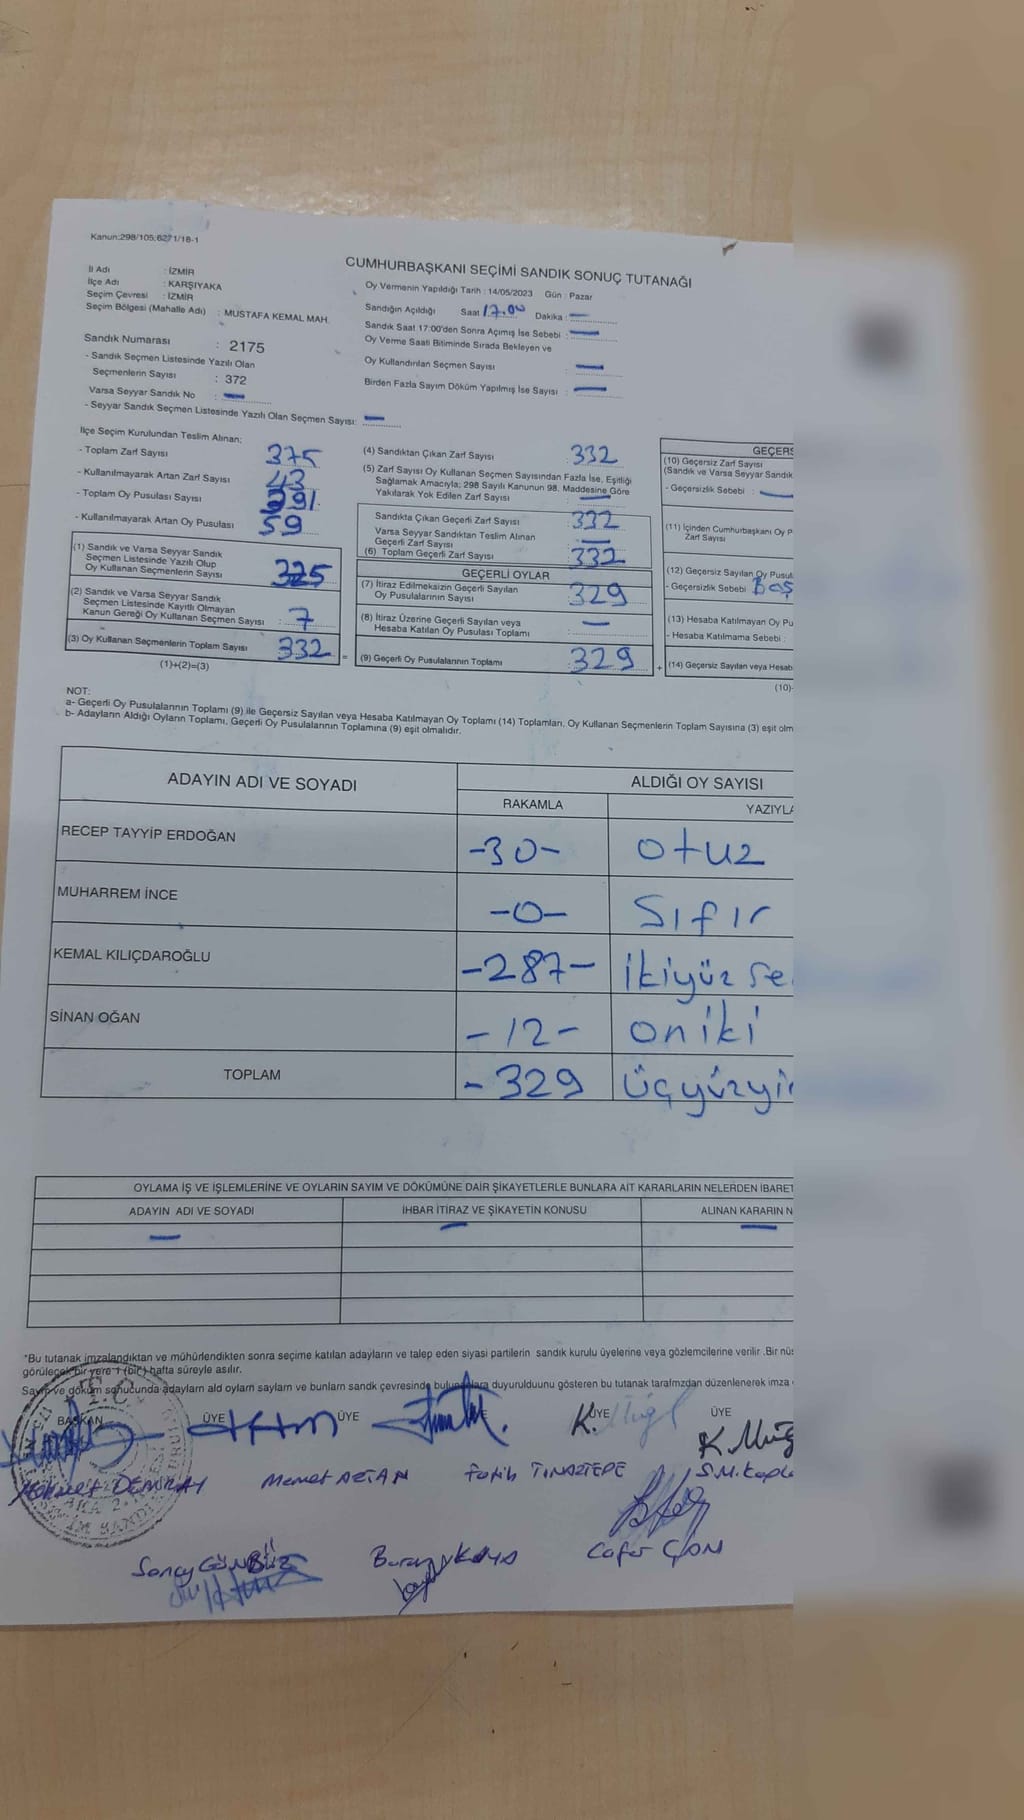 Kanun:298/105;6271/18-1
CUMHURBAŞKANI SEÇİMİ SANDIK SONUÇ TUTANAĞI
İl Adı : İZMİR
İlçe Adı : KARŞIYAKA
Seçim Çevresi : İZMİR
Seçim Bölgesi (Mahalle Adı) : MUSTAFA KEMAL MAH.
Sandık Numarası : 2175
- Sandık Seçmen Listesinde Yazılı Olan
Seçmenlerin Sayısı : 372
Varsa Seyyar Sandık No : —
- Seyyar Sandık Seçmen Listesinde Yazılı Olan Seçmen Sayısı: —
Oy Vermenin Yapıldığı Tarih : 14/05/2023 Gün : Pazar
Sandığın Açıldığı Saat 17.00 Dakika : —
Sandık Saat 17:00'den Sonra Açımış İse Sebebi : —
Oy Verme Saati Bitiminde Sırada Bekleyen ve
Oy Kullandırılan Seçmen Sayısı : —
Birden Fazla Sayım Döküm Yapılmış İse Sayısı : —
İlçe Seçim Kurulundan Teslim Alınan;
- Toplam Zarf Sayısı 375
- Kullanılmayarak Artan Zarf Sayısı 43
- Toplam Oy Pusulası Sayısı
- Kullanılmayarak Artan Oy Pusulası 59
(1) Sandık ve Varsa Seyyar Sandık
Seçmen Listesinde Yazılı Olup
Oy Kullanan Seçmenlerin Sayısı 325
(2) Sandık ve Varsa Seyyar Sandık
Seçmen Listesinde Kayıtlı Olmayan
Kanun Gereği Oy Kullanan Seçmen Sayısı : 7
(3) Oy Kullanan Seçmenlerin Toplam Sayısı 332
(1)+(2)=(3)
=
(4) Sandıktan Çıkan Zarf Sayısı : 332
(5) Zarf Sayısı Oy Kullanan Seçmen Sayısından Fazla İse, Eşitliği
Sağlamak Amacıyla; 298 Sayılı Kanunun 98. Maddesine Göre
Yakılarak Yok Edilen Zarf Sayısı : —
Sandıkta Çıkan Geçerli Zarf Sayısı : 332
Varsa Seyyar Sandıktan Teslim Alınan
Geçerli Zarf Sayısı : —
(6) Toplam Geçerli Zarf Sayısı : 332
GEÇERLİ OYLAR
(7) İtiraz Edilmeksizin Geçerli Sayılan
Oy Pusulalarının Sayısı : 329
(8) İtiraz Üzerine Geçerli Sayılan veya
Hesaba Katılan Oy Pusulası Toplamı : —
(9) Geçerli Oy Pusulalarının Toplamı : 329
+
GEÇERS
(10) Geçersiz Zarf Sayısı
(Sandık ve Varsa Seyyar Sandık
- Geçersizlik Sebebi : —
(11) İçinden Cumhurbaşkanı Oy P
Zarf Sayısı
(12) Geçersiz Sayılan Oy Pusul
- Geçersizlik Sebebi Boş
(13) Hesaba Katılmayan Oy Pu
- Hesaba Katılmama Sebebi :
(14) Geçersiz Sayılan veya Hesab
(10)-
NOT:
a- Geçerli Oy Pusulalarının Toplamı (9) ile Geçersiz Sayılan veya Hesaba Katılmayan Oy Toplamı (14) Toplamları, Oy Kullanan Seçmenlerin Toplam Sayısına (3) eşit olm
b- Adayların Aldığı Oyların Toplamı, Geçerli Oy Pusulalarının Toplamına (9) eşit olmalıdır.
ADAYIN ADI VE SOYADI
ALDIĞI OY SAYISI
RAKAMLA
YAZIYLA
RECEP TAYYİP ERDOĞAN -30- otuz
MUHARREM İNCE -0- Sıfır
KEMAL KILIÇDAROĞLU -287- ikiyüz se
SİNAN OĞAN -12- oniki
TOPLAM -329 üçyüzyi
OYLAMA İŞ VE İŞLEMLERİNE VE OYLARIN SAYIM VE DÖKÜMÜNE DAİR ŞİKAYETLERLE BUNLARA AİT KARARLARIN NELERDEN İBARET
ADAYIN ADI VE SOYADI İHBAR İTİRAZ VE ŞİKAYETİN KONUSU ALINAN KARARIN N
— — —
*Bu tutanak imzalandıktan ve mühürlendikten sonra seçime katılan adayların ve talep eden siyasi partilerin sandık kurulu üyelerine veya gözlemcilerine verilir .Bir nüs
görülecek bir yere 1 (bir) hafta süreyle asılır.
Sayım ve döküm sonucunda adayların ald oyların sayların ve bunların sandk çevresinde bulunanlara duyurulduunu gösteren bu tutanak tarafmzdan düzenlenerek imza
T.C.
BAŞKAN ÜYE ÜYE ÜYE ÜYE
Mehmet DEMİRAY Memet AZTAN Fatih TINAZTEPE S.M.Kapla
Cafer ÇAM